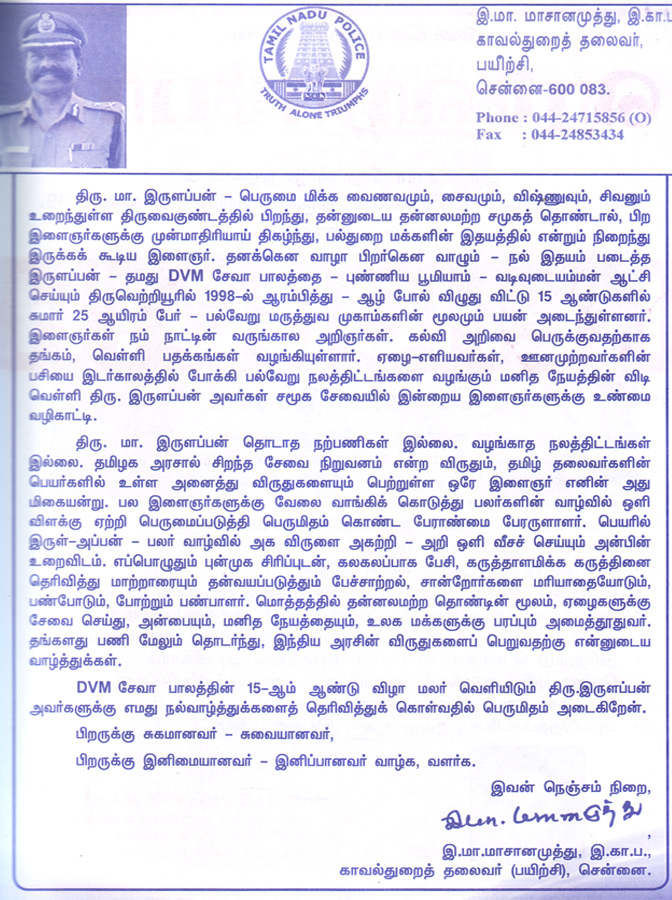 இ.மா. மாசானமுத்து, இ.கா.ப
காவல்துறைத் தலைவர்,
பயிற்சி,
சென்னை-600 083.
Phone : 044-24715856 (O)
Fax : 044-24853434
TAMIL NADU POLICE
TRUTH ALONE TRIUMPHS
திரு. மா. இருளப்பன் – பெருமை மிக்க வைணவமும், சைவமும், விஷ்ணுவும், சிவனும்
உறைந்துள்ள திருவைகுண்டத்தில் பிறந்து, தன்னுடைய தன்னலமற்ற சமுகத் தொண்டால், பிற
இளைஞர்களுக்கு முன்மாதிரியாய் திகழ்ந்து, பல்துறை மக்களின் இதயத்தில் என்றும் நிறைந்து
இருக்கக் கூடிய இளைஞர். தனக்கென வாழா பிறர்கென வாழும் – நல் இதயம் படைத்த
இருளப்பன் – தமது DVM சேவா பாலத்தை – புண்ணிய பூமியாம் – வடிவுடையம்மன் ஆட்சி
செய்யும் திருவெற்றியூரில் 1998-ல் ஆரம்பித்து – ஆழ் போல் விழுது விட்டு 15 ஆண்டுகளில்
சுமார் 25 ஆயிரம் பேர் – பல்வேறு மருத்துவ முகாம்களின் மூலமும் பயன் அடைந்துள்ளனர்.
இளைஞர்கள் நம் நாட்டின் வருங்கால அறிஞர்கள். கல்வி அறிவை பெருக்குவதற்காக
தங்கம், வெள்ளி பதக்கங்கள் வழங்கியுள்ளார். ஏழை-எளியவர்கள், ஊனமுற்றவர்களின்
பசியை இடர்காலத்தில் போக்கி பல்வேறு நலத்திட்டங்களை வழங்கும் மனித நேயத்தின் விடி
வெள்ளி திரு. இருளப்பன் அவர்கள் சமூக சேவையில் இன்றைய இளைஞர்களுக்கு உண்மை
வழிகாட்டி.
திரு. மா. இருளப்பன் தொடாத நற்பணிகள் இல்லை. வழங்காத நலத்திட்டங்கள்
இல்லை. தமிழக அரசால் சிறந்த சேவை நிறுவனம் என்ற விருதும், தமிழ் தலைவர்களின்
பெயர்களில் உள்ள அனைத்து விருதுகளையும் பெற்றுள்ள ஒரே இளைஞர் எனின் அது
மிகையன்று. பல இளைஞர்களுக்கு வேலை வாங்கிக் கொடுத்து பலர்களின் வாழ்வில் ஒளி
விளக்கு ஏற்றி பெருமைப்படுத்தி பெருமிதம் கொண்ட பேராண்மை பேரருளாளர். பெயரில்
இருள்-அப்பன் – பலர் வாழ்வில் அக விருளை அகற்றி – அறி ஒளி வீசச் செய்யும் அன்பின்
உறைவிடம். எப்பொழுதும் புன்முக சிரிப்புடன், கலகலப்பாக பேசி, கருத்தாளமிக்க கருத்தினை
தெரிவித்து மாற்றாரையும் தன்வயப்படுத்தும் பேச்சாற்றல், சான்றோர்களை மரியாதையோடும்,
பண்போடும், போற்றும் பண்பாளர். மொத்தத்தில் தன்னலமற்ற தொண்டின் மூலம், ஏழைகளுக்கு
சேவை செய்து, அன்பையும், மனித நேயத்தையும், உலக மக்களுக்கு பரப்பும் அமைத்தூதுவர்.
தங்களது பணி மேலும் தொடர்ந்து, இந்திய அரசின் விருதுகளைப் பெறுவதற்கு என்னுடைய
வாழ்த்துக்கள்.
DVM சேவா பாலத்தின் 15-ஆம் ஆண்டு விழா மலர் வெளியிடும் திரு.இருளப்பன்
அவர்களுக்கு எமது நல்வாழ்த்துக்களைத் தெரிவித்துக் கொள்வதில் பெருமிதம் அடைகிறேன்.
பிறருக்கு சுகமானவர் – சுவையானவர்,
பிறருக்கு இனிமையானவர் – இனிப்பானவர் வாழ்க, வளர்க.
இவன் நெஞ்சம் நிறை,
இ.மா.மாசானமுத்து, இ.கா.ப.,
காவல்துறைத் தலைவர் (பயிற்சி), சென்னை.